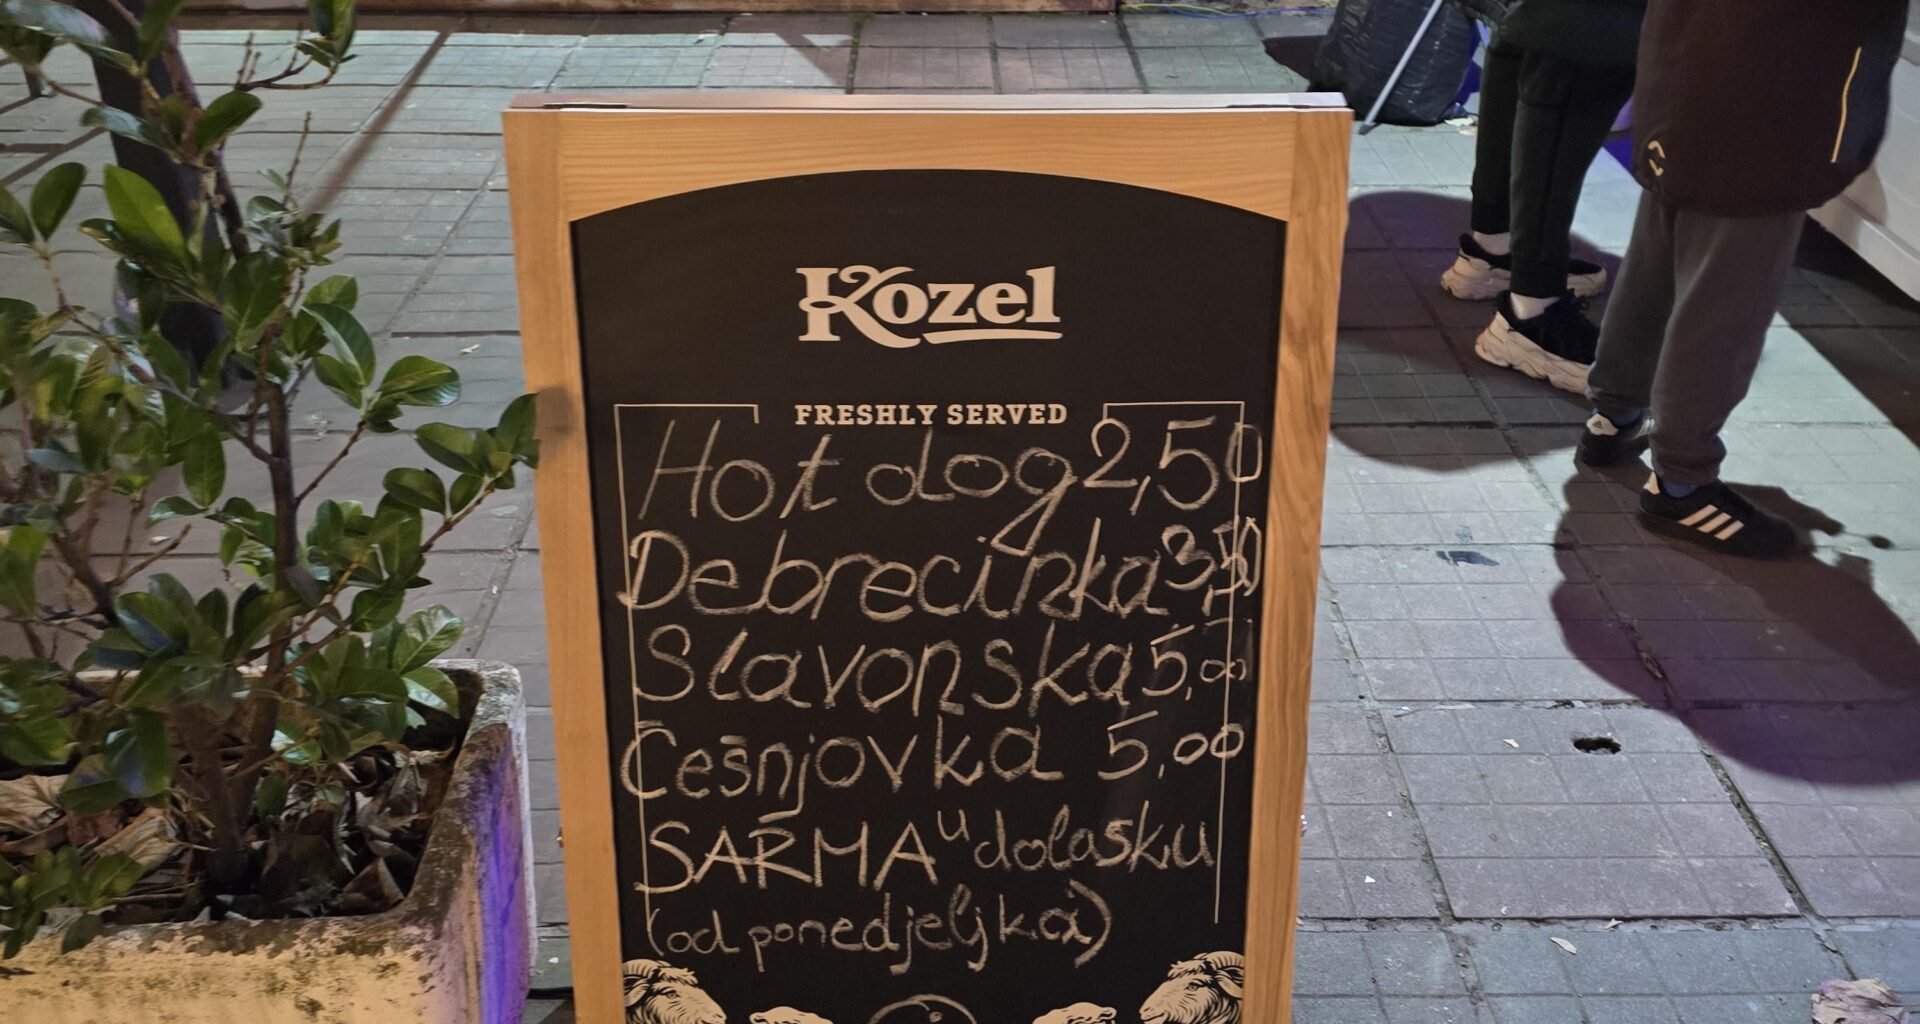 Kozel
FRESHLY SERVED
Hot dog 2,50
Debrecinka 3,50
Slavonska 5,00
Češnjovka 5,00
SARMA u dolasku
(od ponedjeljka)